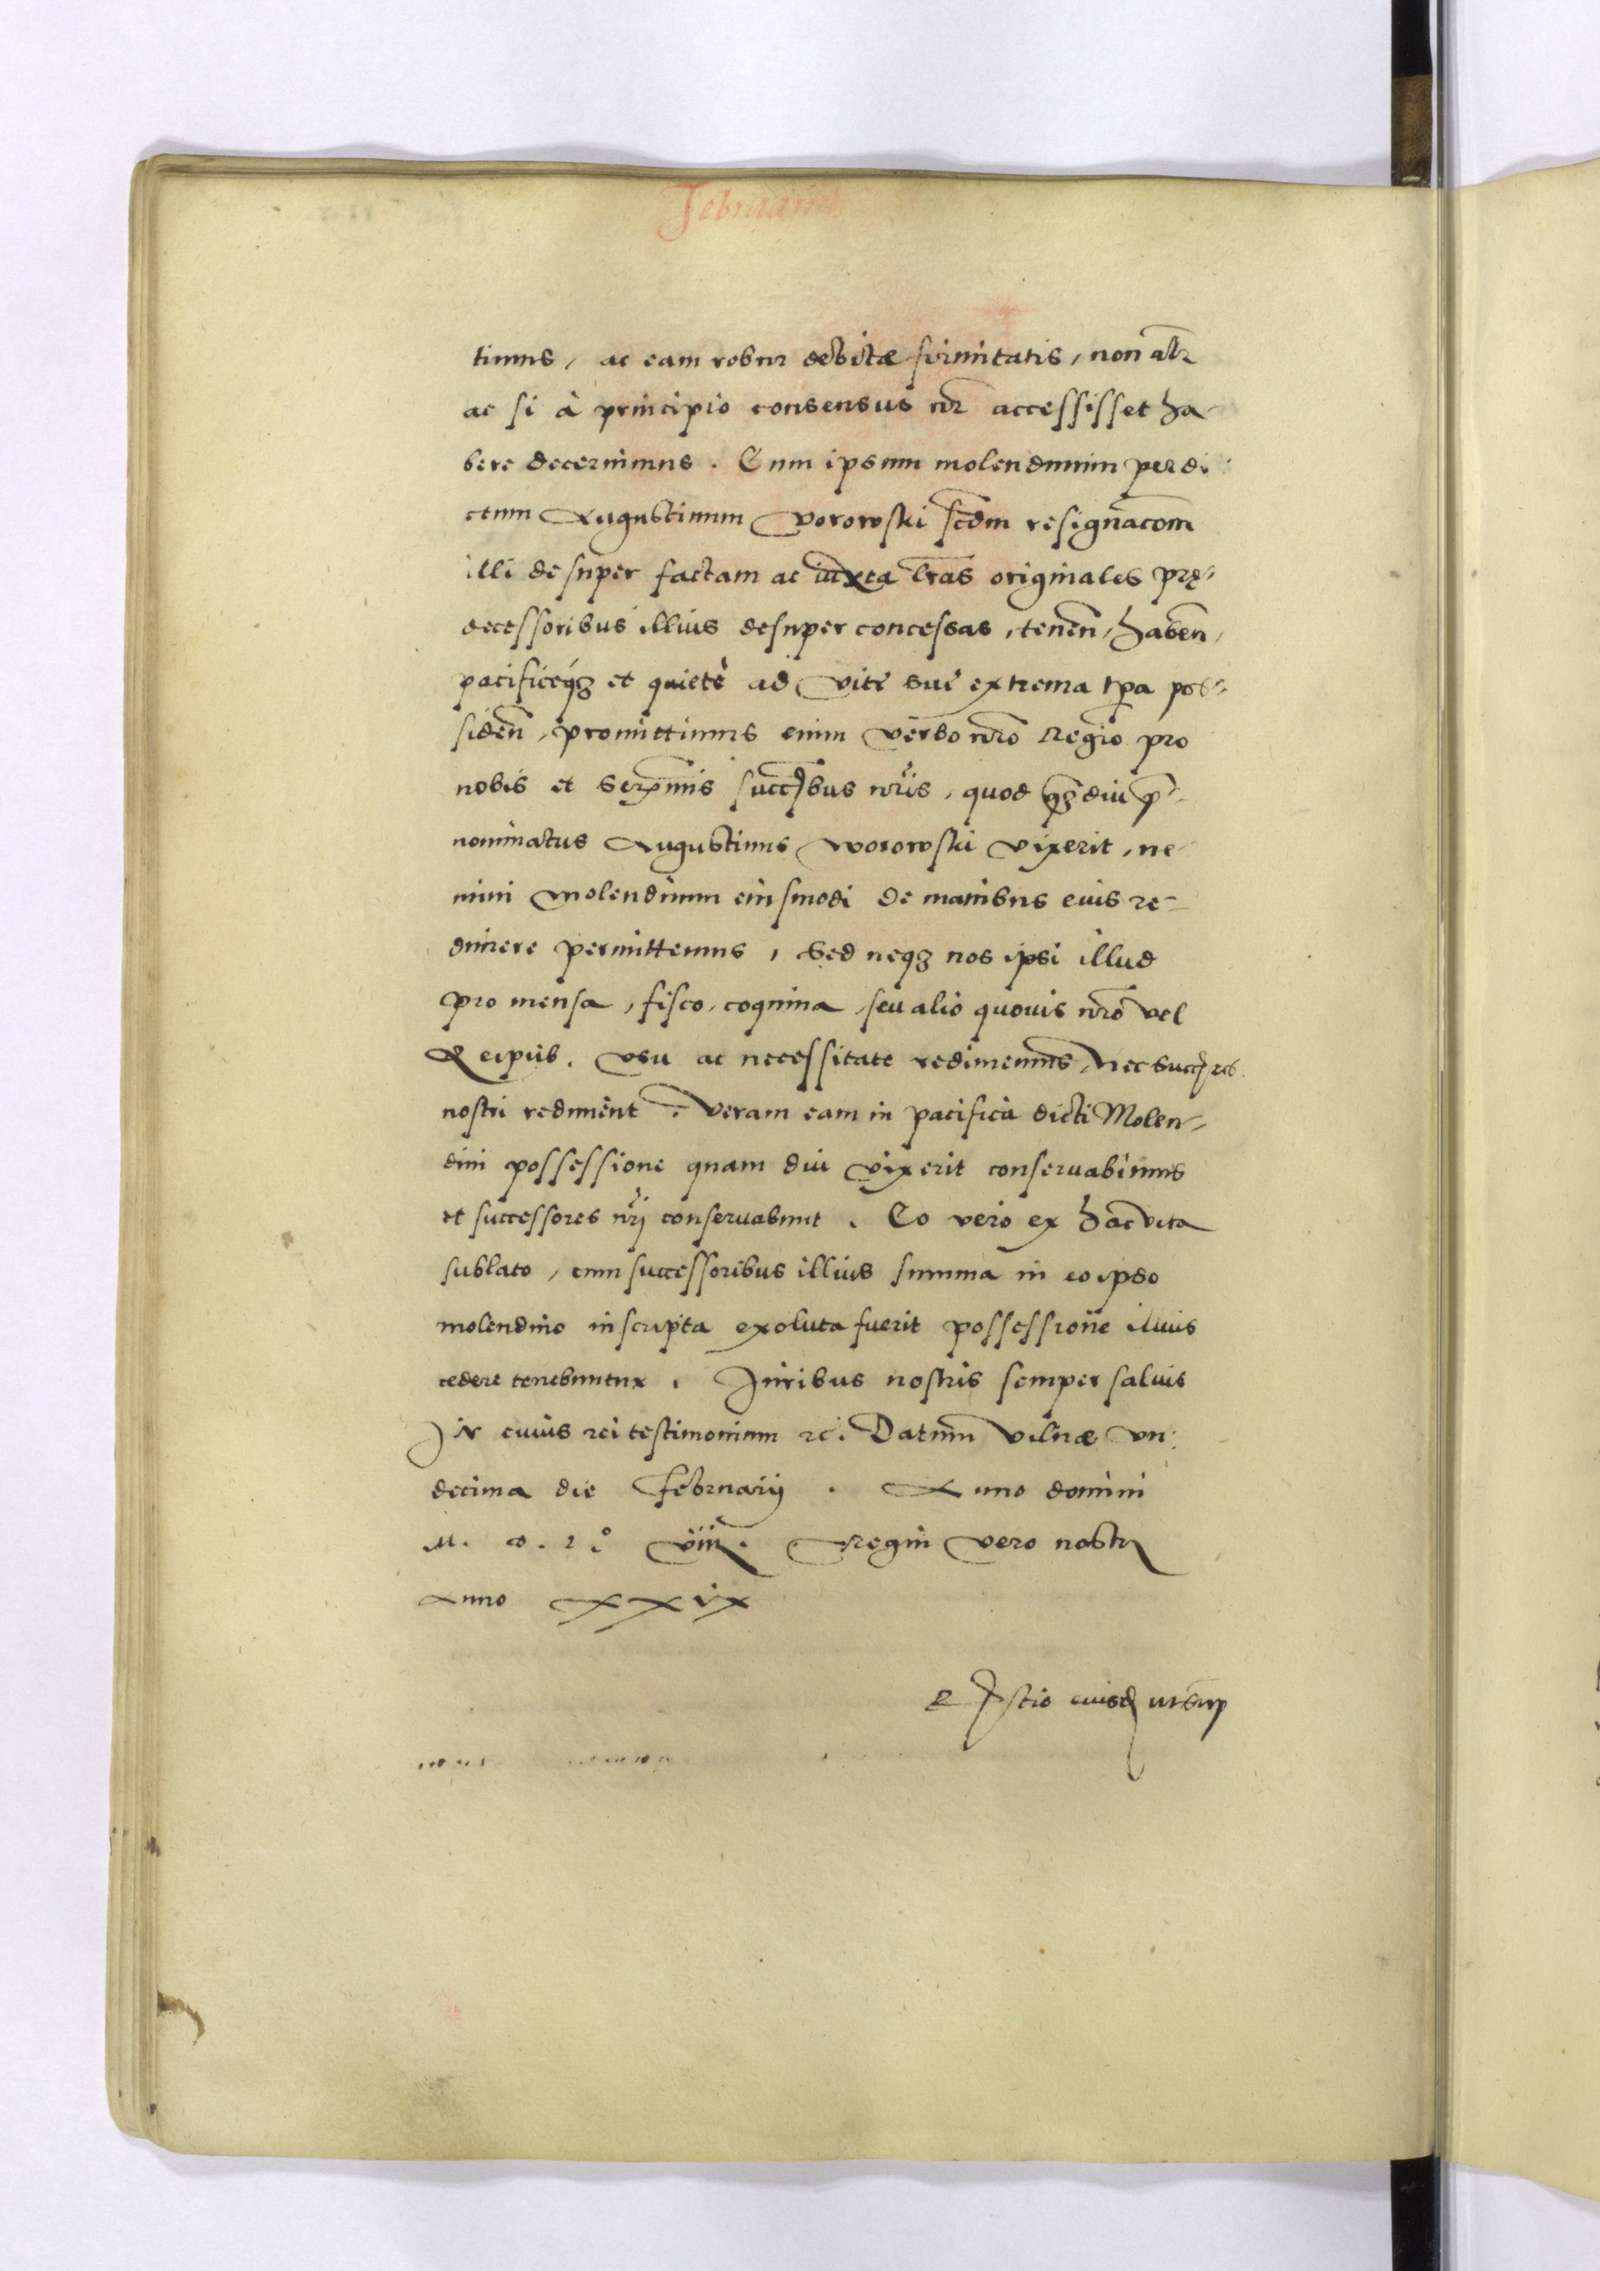 Februarius
timus, ac eam robur debitæ firmitatis, non alr̃
ac si à principio consensus nr̃ accessisset ha
bere decernimus. Cum ipsum molendinum per di
ctum Augustinum Vorowski scdm̃ resignac̃om
illi desuper factam ac iuxta lr̃as originales prę-
decessoribus illius desuper concessas, tenen̄, haben̄,
pacificeq3 et quietè ad vitę suę extrema tp̃a pos-
siden̄, promittimus enim verbo nr̃o Regio pro
nobis et Ser̃mis succ̃bus nr̃is, quod q̃3diu p̃-
nominatus Augustinus Worowski vixerit, ne-
mini molendinum eiusmodi de manibus eius re-
dimere permittemus, Sed neq3 nos ipsi illud
pro mensa, fisco, coquina, seu alio quouis nr̃o vel
Reipub. vsu ac necessitate redimemus, Nec succ̃res
nostri rediment. Verum eum in pacifica dicti Molen-
dini possessione quam diu vixerit conseruabimus
et successores nr̃j conseruabunt. Eo vero ex hac vita
sublato, cum successoribus illius summa in eo ipso
molendino inscripta exoluta fuerit possessione illius
cedere tenebuntur. Iuribus nostris semper saluis
IN cuius rei testimonium rc. Datum Vilnæ vn
decima die Februarij. Anno domini
M. D. L.° viij. Regni vero nostrj
Anno XXIX